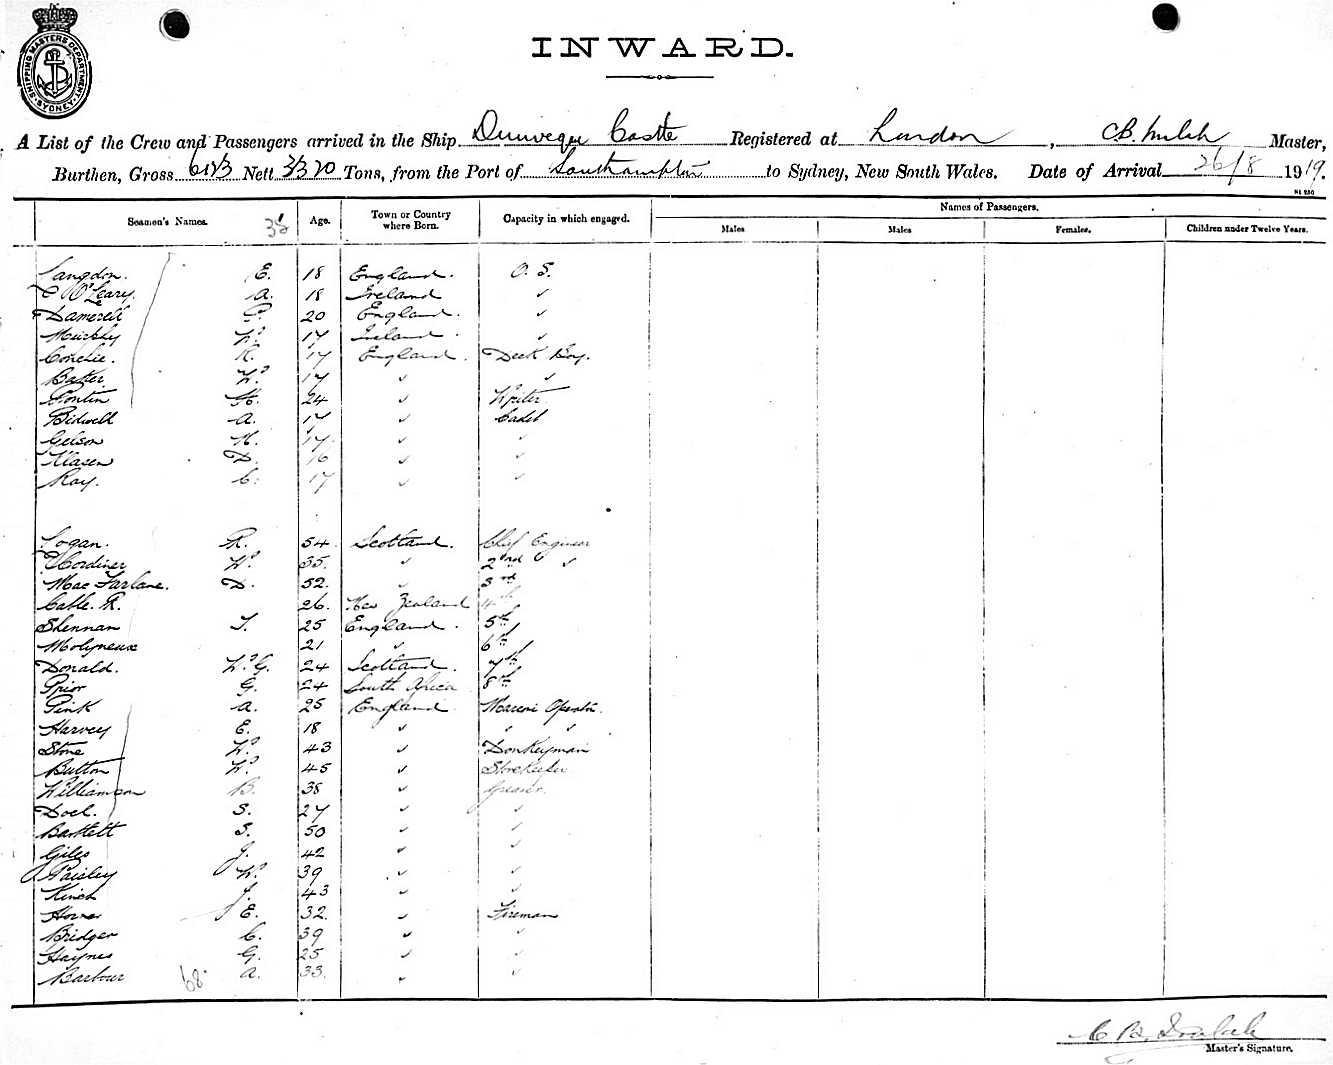 SHIPPING MASTERS DEPARTMENT SYDNEY
INWARD.
A List of the Crew and Passengers arrived in the Ship Dunvegan Castle Registered at London, Master,
Burthen, Gross Nett 3320 Tons, from the Port of Southampton to Sydney, New South Wales. Date of Arrival 26/8 1919.
Seamen's Names. Age. Town or Country where Born. Capacity in which engaged. Names of Passengers.
Males Males Females. Children under Twelve Years.
Langdon. E. 18 England. O. S.
O'Leary. A. 18 Ireland "
Damerell 20 England. "
W. 17 Ireland. "
K. 17 England. Deck Boy.
Baker W. 17 " "
Pontin H. 24 " Writer
Bidwell A. 17 " Cadet
Gelson M. 17. " "
Klasen D. 16 " "
Ray. C. 17 " "
Logan. R. 54 Scotland. Chief Engineer
Cordiner W. 35. " 2nd "
MacFarlane. D. 52. " 3rd
Cable. R. 26. New Zealand 4th
Shennan T. 25 England. 5th
Molyneux 21 " 6th
Donald. W. G. 24 Scotland. 7th
Prior G. 24 South Africa 8th
Pink A. 25 England Marconi Operator.
Harvey E. 18 " " "
Stone W. 43 " Donkeyman
Button W. 45 " Storekeeper
Williamson B. 38 " Greaser.
Doel. S. 27 " "
Bartlett S. 50 " "
Giles J. 42 " "
Paisley W. 39 " "
Kinch J. 43 " "
E. 32 " Fireman
Bridger C. 39 " "
Haynes G. 25 " "
Barbour 68 A. 33. " "
Master's Signature.